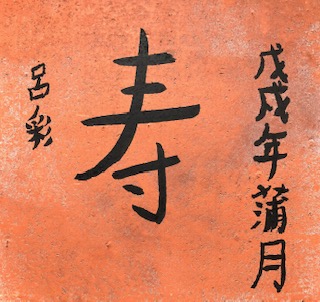 戊戌年蒲月
寿
呂彩